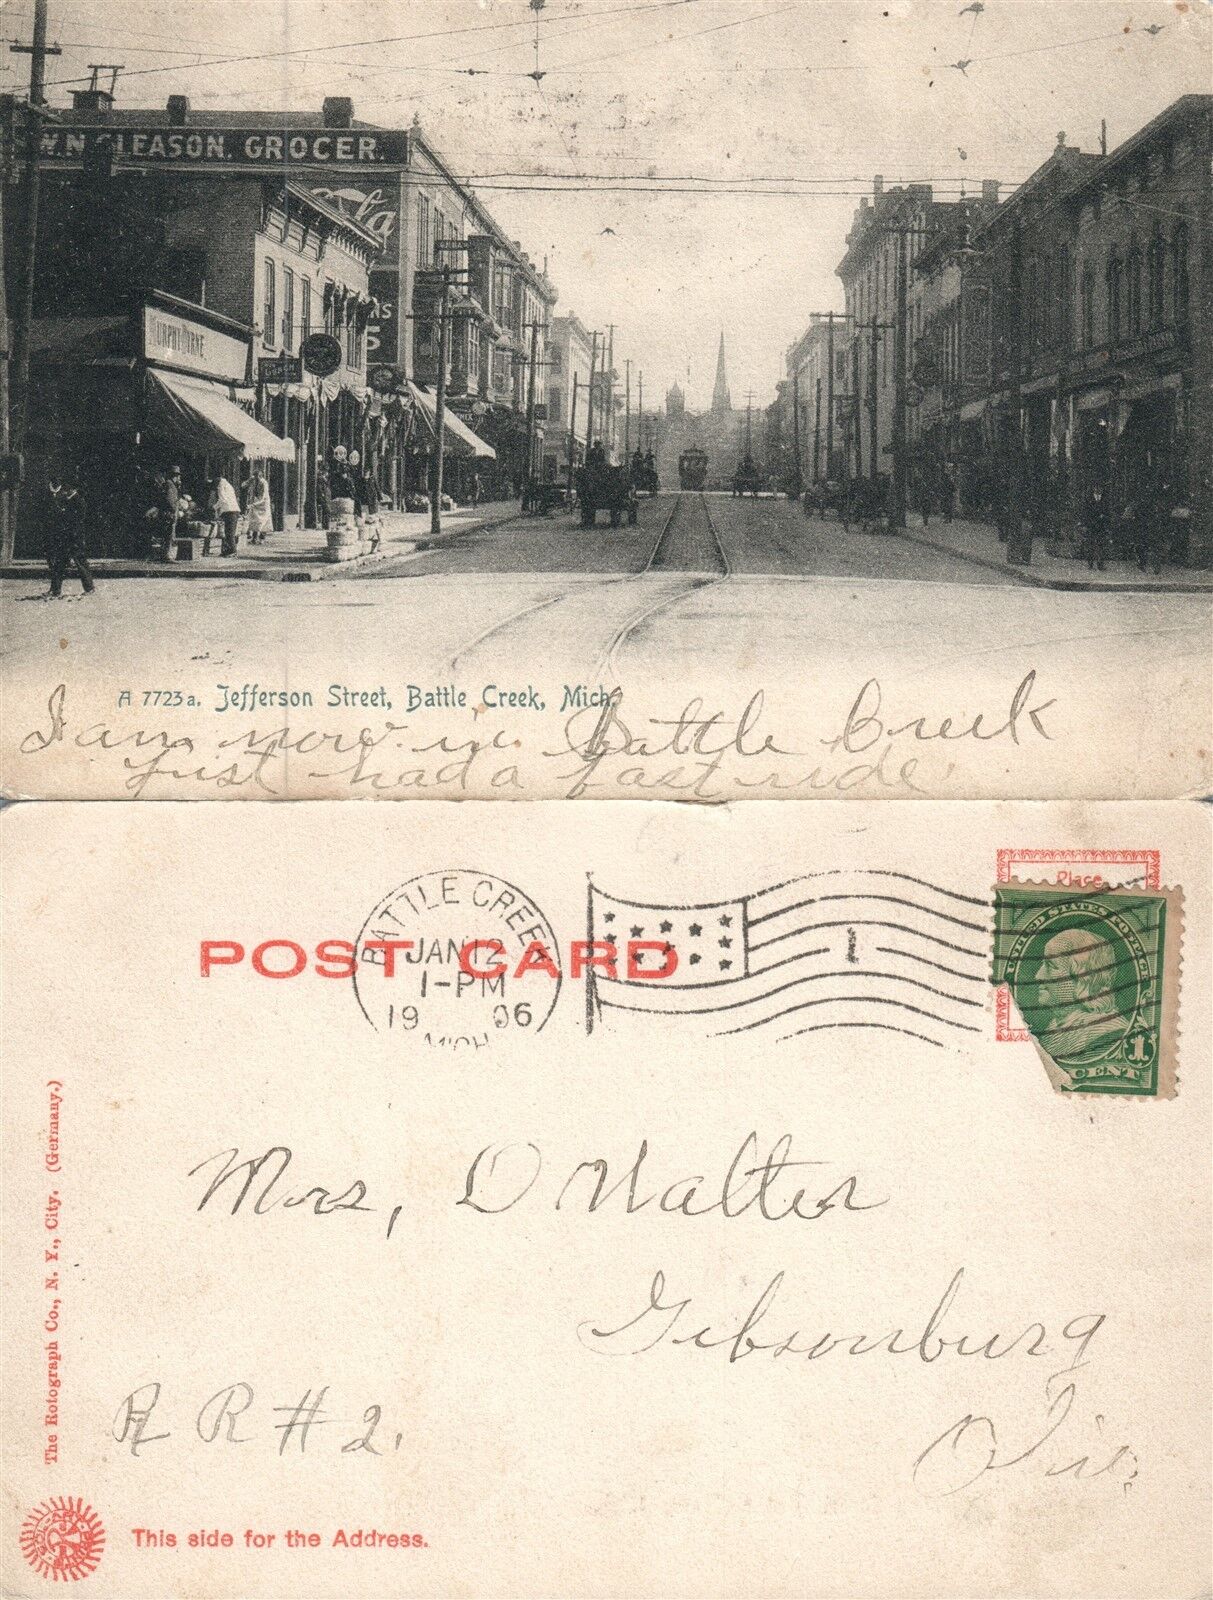 W.N. GLEASON. GROCER.
A 7723a. Jefferson Street, Battle Creek, Mich.
I am now in Battle Creek
Just had a fast ride
POST CARD
BATTLE CREEK
JAN 12
1-PM
1906
MICH
1
Place
UNITED STATES POSTAGE
1
CENT
Mrs, D Walter
Gibsonburg
R R # 2.
Ohio.
The Rotograph Co., N. Y., City. (Germany.)
This side for the Address.